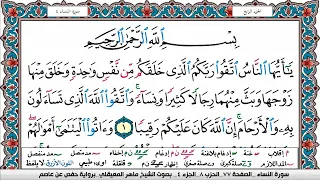 سورة النساء ٤
الجزء الرابع
بِسْمِ اللَّهِ الرَّحْمَٰنِ الرَّحِيمِ
يَٰٓأَيُّهَا النَّاسُ اتَّقُوا رَبَّكُمُ الَّذِي خَلَقَكُم مِّن نَّفْسٍ وَٰحِدَةٍ وَخَلَقَ مِنْهَا
زَوْجَهَا وَبَثَّ مِنْهُمَا رِجَالًا كَثِيرًا وَنِسَآءً ۚ وَاتَّقُوا اللَّهَ الَّذِي تَسَآءَلُونَ
بِهِۦ وَالْأَرْحَامَ ۚ إِنَّ اللَّهَ كَانَ عَلَيْكُمْ رَقِيبًا ١ وَءَاتُوا الْيَتَٰمَىٰٓ أَمْوَٰلَهُمْ ۖ
سورة النساء - الصفحة ٧٧ الحزب ٨ الجزء ٤ - بصوت الشيخ ماهر المعيقلي - برواية حفص عن عاصم